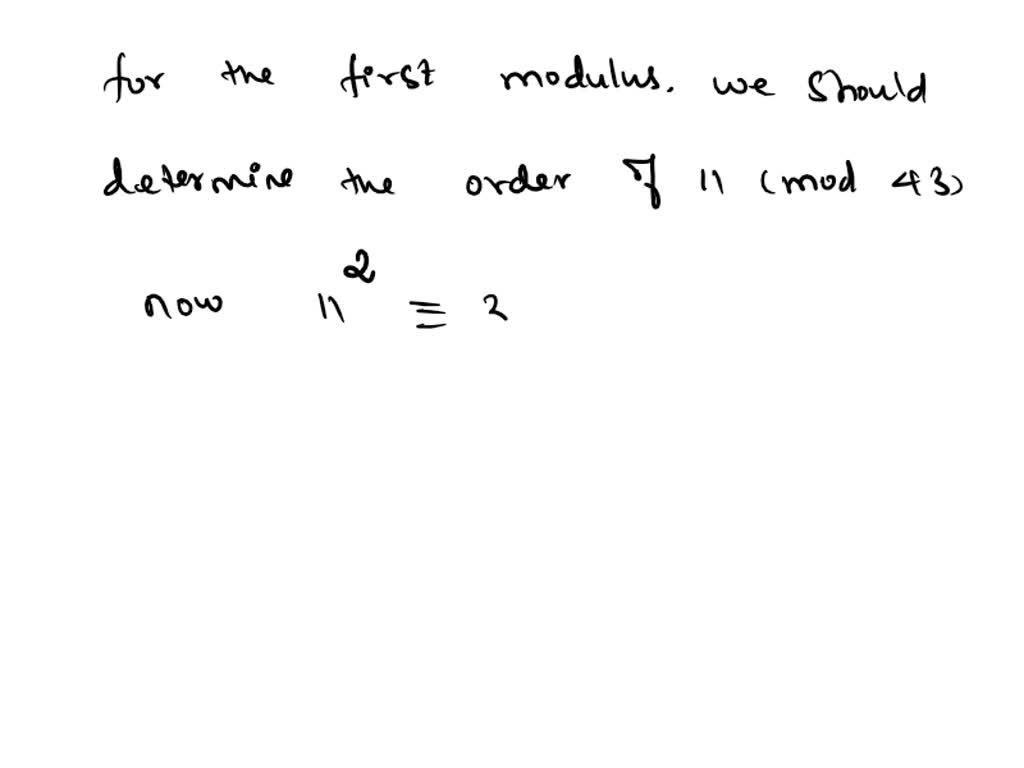 for the first modulus. we should
determine the order of 11 (mod 43)
now 11² ≡ 2